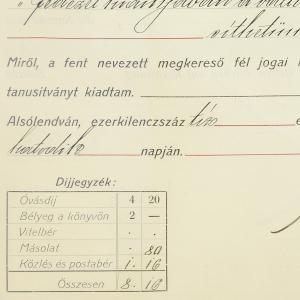 vithetün
Miről, a fent nevezett megkereső fél jogai
tanusítványt kiadtam.
Alsólendván, ezerkilenczszáz tiz
hatodik napján.
Díjjegyzék:
Óvásdíj 4 20
Bélyeg a könyvön 2 —
Vitelbér . .
Másolat . 80
Közlés és postabér 1. 16
Összesen 8. 16